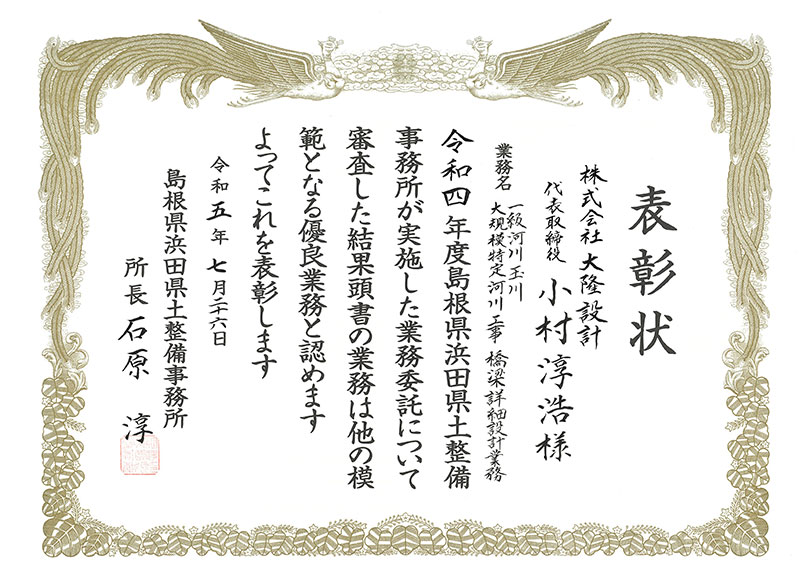 表彰状
株式会社 大隆設計
代表取締役 小村淳浩様
業務名 一級河川 玉川
大規模特定河川工事 橋梁詳細設計業務
令和四年度島根県浜田県土整備
事務所が実施した業務委託について
審査した結果頭書の業務は他の模
範となる優良業務と認めます
よってこれを表彰します
令和五年七月二十六日
島根県浜田県土整備事務所
所長 石原 淳